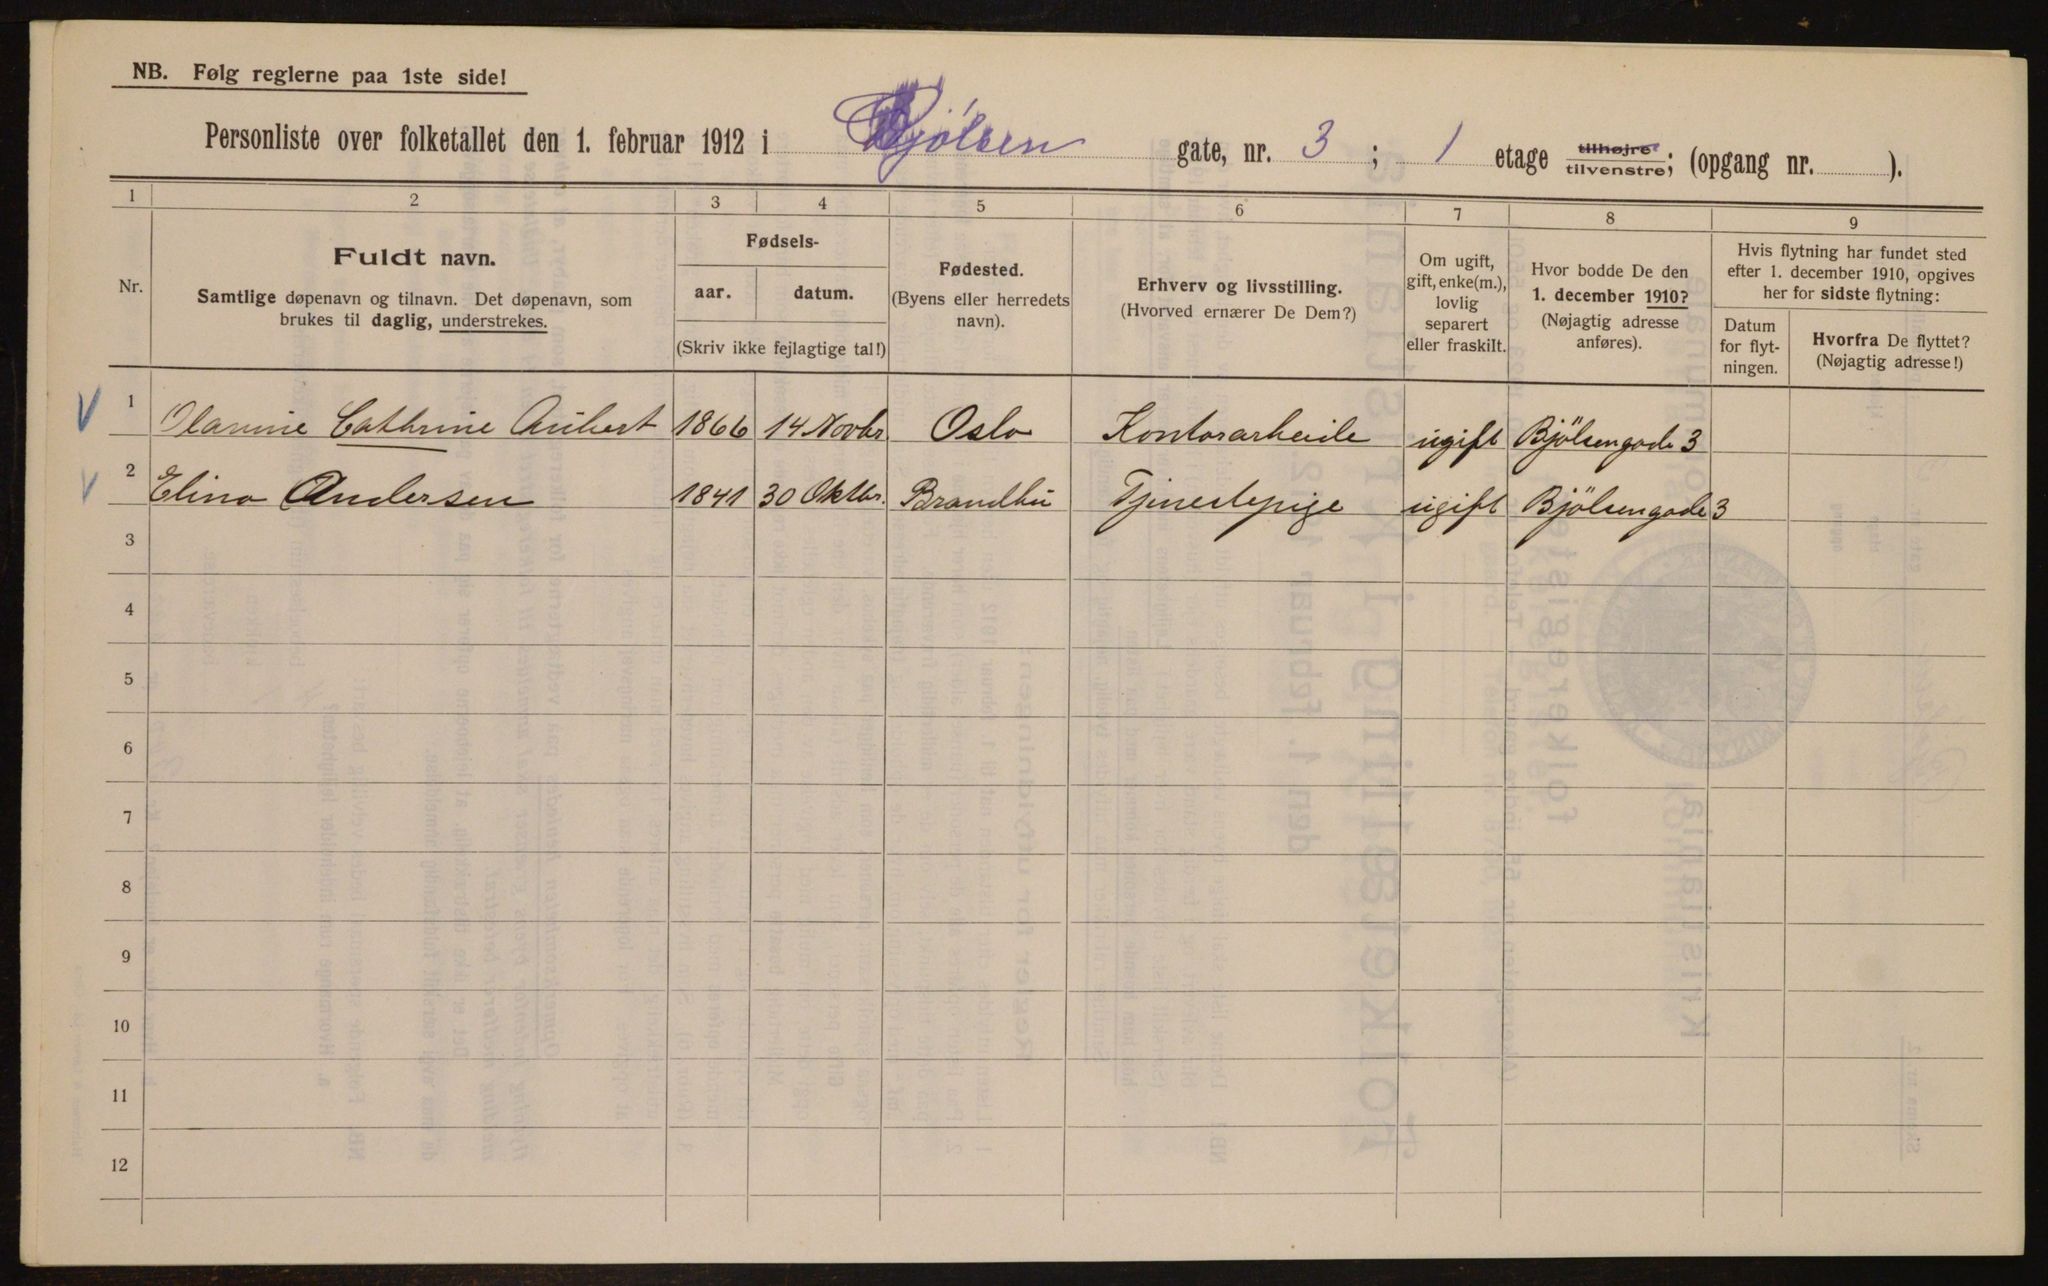 NB. Følg reglerne paa 1ste side!
Personliste over folketallet den 1. februar 1912 i Bjølsen gate, nr. 3 ; 1 etage tilhøjre tilvenstre; (opgang nr. ).
1 2 3 4 5 6 7 8 9
Nr.
Fuldt navn.
Samtlige døpenavn og tilnavn. Det døpenavn, som
brukes til daglig, understrekes.
Fødsels-
aar. datum.
(Skriv ikke fejlagtige tal!)
Fødested.
(Byens eller herredets
navn).
Erhverv og livsstilling.
(Hvorved ernærer De Dem?)
Om ugift,
gift, enke(m.),
lovlig
separert
eller fraskilt.
Hvor bodde De den
1. december 1910?
(Nøjagtig adresse
anføres).
Hvis flytning har fundet sted
efter 1. december 1910, opgives
her for sidste flytning:
Datum
for flyt-
ningen.
Hvorfra De flyttet?
(Nøjagtig adresse!)
1 Cathrine Aubert 1866 14 Novbr. Oslo Kontorarbeide ugift Bjölsengade 3
2 Elina Andersen 1841 30 Oktbr. Brandbu Tjenestepige ugift Bjölsengade 3
3
4
5
6
7
8
9
10
11
12